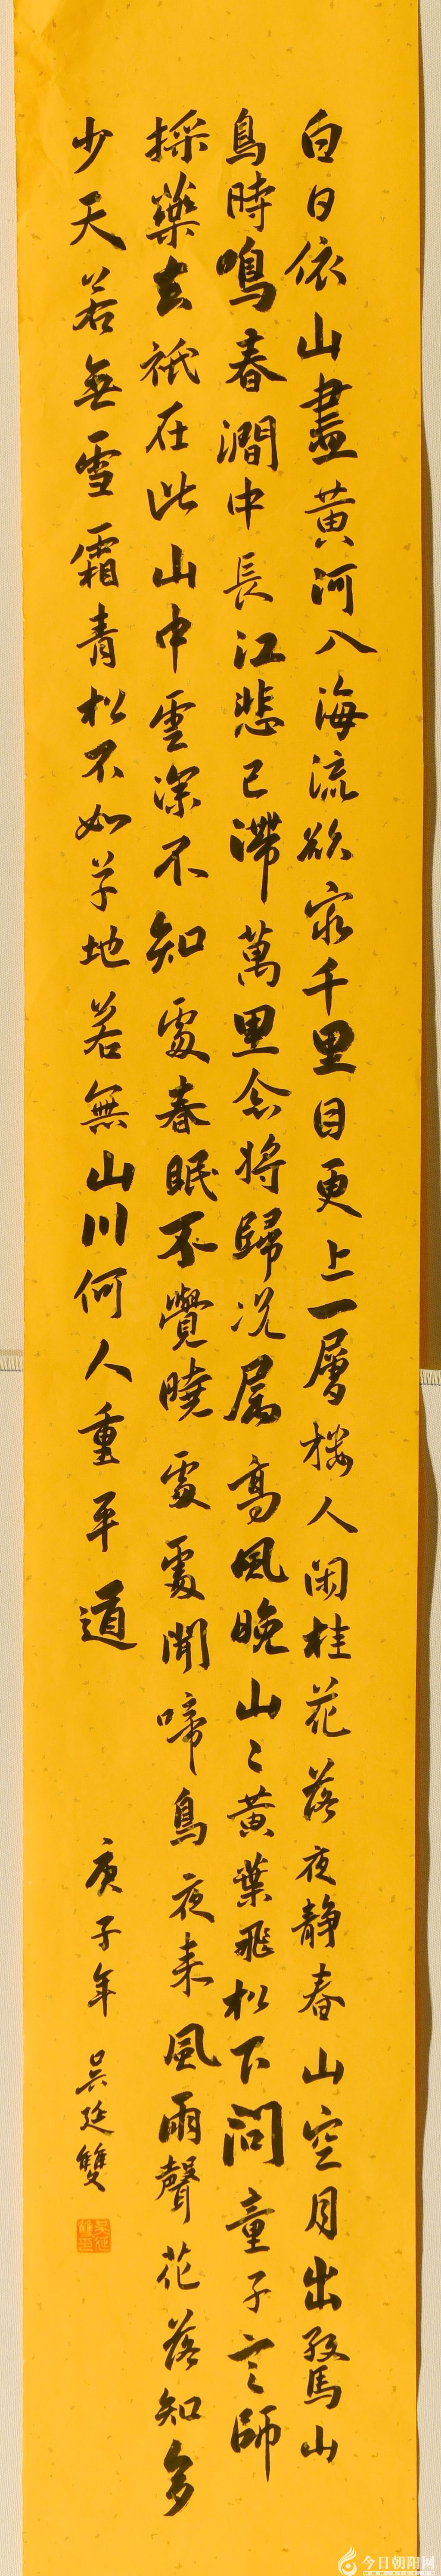 白日依山盡黄河入海流欲窮千里目更上一層樓人闲桂花落夜静春山空月出驚山
鳥時鳴春澗中長江悲已滯萬里念将歸况属高風晚山〻黄葉飛松下問童子言師
採藥去祇在此山中雲深不知處春眠不覺曉處處聞啼鳥夜来風雨聲花落知多
少天若無雪霜青松不如草地若無山川何人重平道
庚子年 吴延雙
今日朝阳网